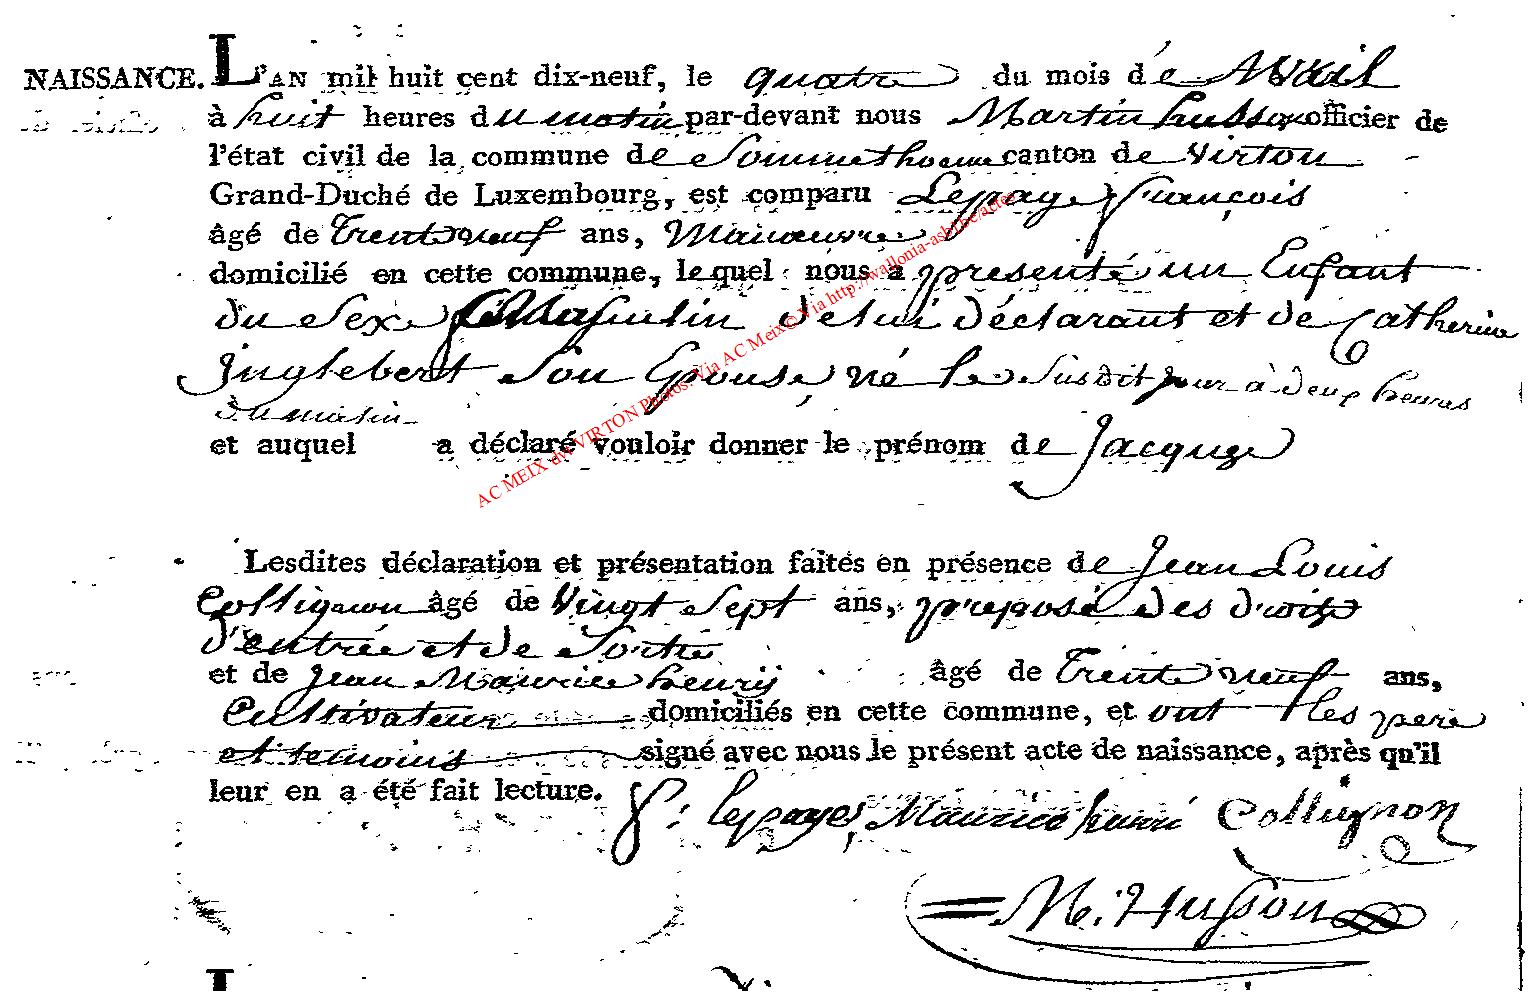 NAISSANCE. L'AN mil huit cent dix-neuf, le quatre du mois de Avril
à huit heures du matin par-devant nous Martin husson officier de
l'état civil de la commune de Sommethonne canton de Virton
Grand-Duché de Luxembourg, est comparu Lepage françois
âgé de trente neuf ans, Manœuvre
domicilié en cette commune, lequel nous a presenté un Enfant
du Sexe Masculin de lui déclarant et de Catherine
Inglebert Son Epouse, né le Susdit jour à deux heures
du matin
et auquel a déclaré vouloir donner le prénom de Jacque
Lesdites déclaration et présentation faites en présence de Jean Louis
Collignon âgé de Vingt Sept ans, preposé des droits
d'entrée et de Sortie
et de Jean Maurice henry âgé de trente neuf ans,
Cultivateur domiciliés en cette commune, et ont les pere
et temoins signé avec nous le présent acte de naissance, après qu'il
leur en a été fait lecture.
f: lepage, Maurice henri Collignon
M. Husson
AC MEIX dvt VIRTON Photos: Via AC Meix © Via http://wallonia-asbl.be/actes